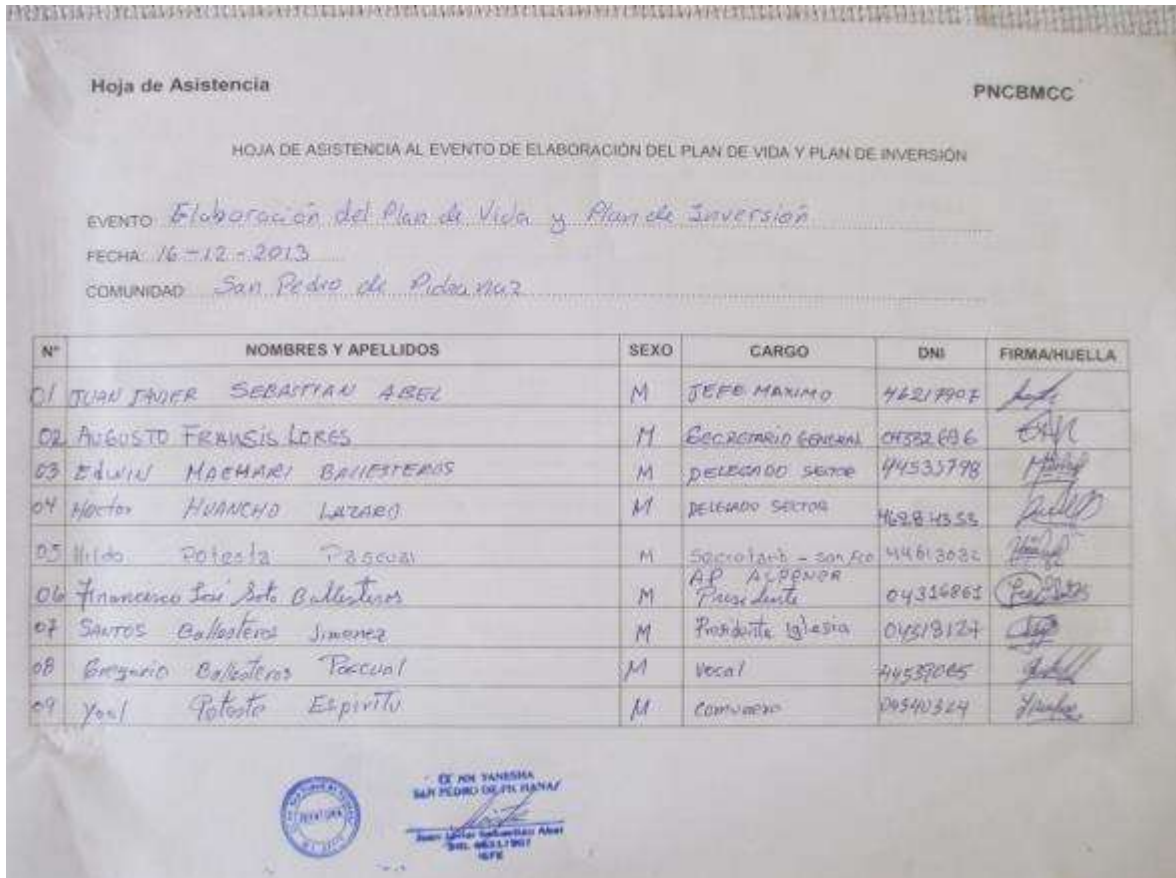 Hoja de Asistencia PNCBMCC
HOJA DE ASISTENCIA AL EVENTO DE ELABORACIÓN DEL PLAN DE VIDA Y PLAN DE INVERSIÓN
EVENTO: Elaboración del Plan de Vida y Plan de Inversión
FECHA: 16-12-2013
COMUNIDAD San Pedro de
N° NOMBRES Y APELLIDOS SEXO CARGO DNI FIRMA/HUELLA
01 JUAN JAVIER SEBASTIAN ABEL M JEFE MAXIMO 46217907
02 AUGUSTO FRANSIS LORES M SECRETARIO GENERAL
03 Edwin BALLESTEROS M DELEGADO SECTOR 44535798
04 Hector HUANCHO LAZARO M DELEGADO SECTOR
05 Hildo Potesta Pascual M
06 José Soto Ballesteros M Presidente 04316861
07 SANTOS Ballesteros Jimenez M Presidente Iglesia
08 Gregorio Ballesteros Pascual M Vocal
09 Yoel Potesta Espiritu M Comunero
JEFATURA
SAN PEDRO DE
Juan Javier Sebastian Abel
JEFE